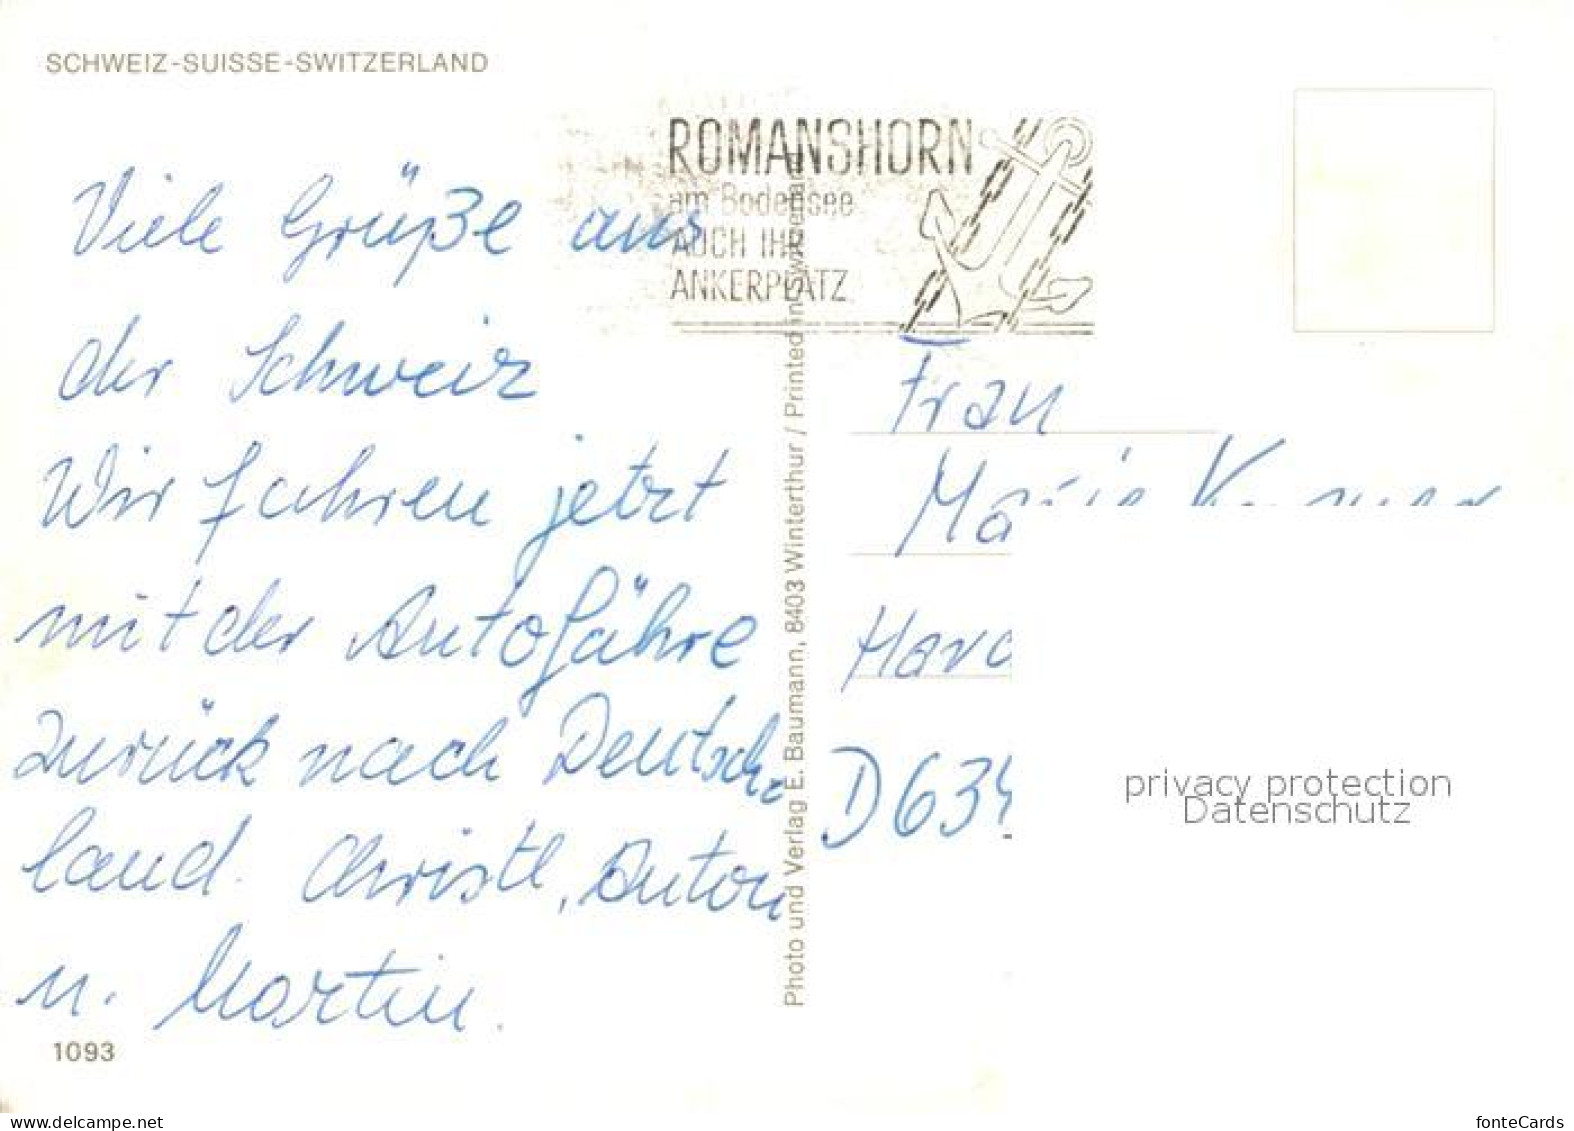 SCHWEIZ-SUISSE-SWITZERLAND
ROMANSHORN
am Bodensee
AUCH IHR
ANKERPLATZ
Viele Grüße aus
der Schweiz
Wir fahren jetzt
mit der Autofähre
zurück nach Deutsch-
land. Christl, Anton
u. Martin.
1093
Photo und Verlag E. Baumann, 8403 Winterthur / Printed in Switzerland
Frau
Maria
D 634
privacy protection
Datenschutz
www.delcampe.net
fonteCards